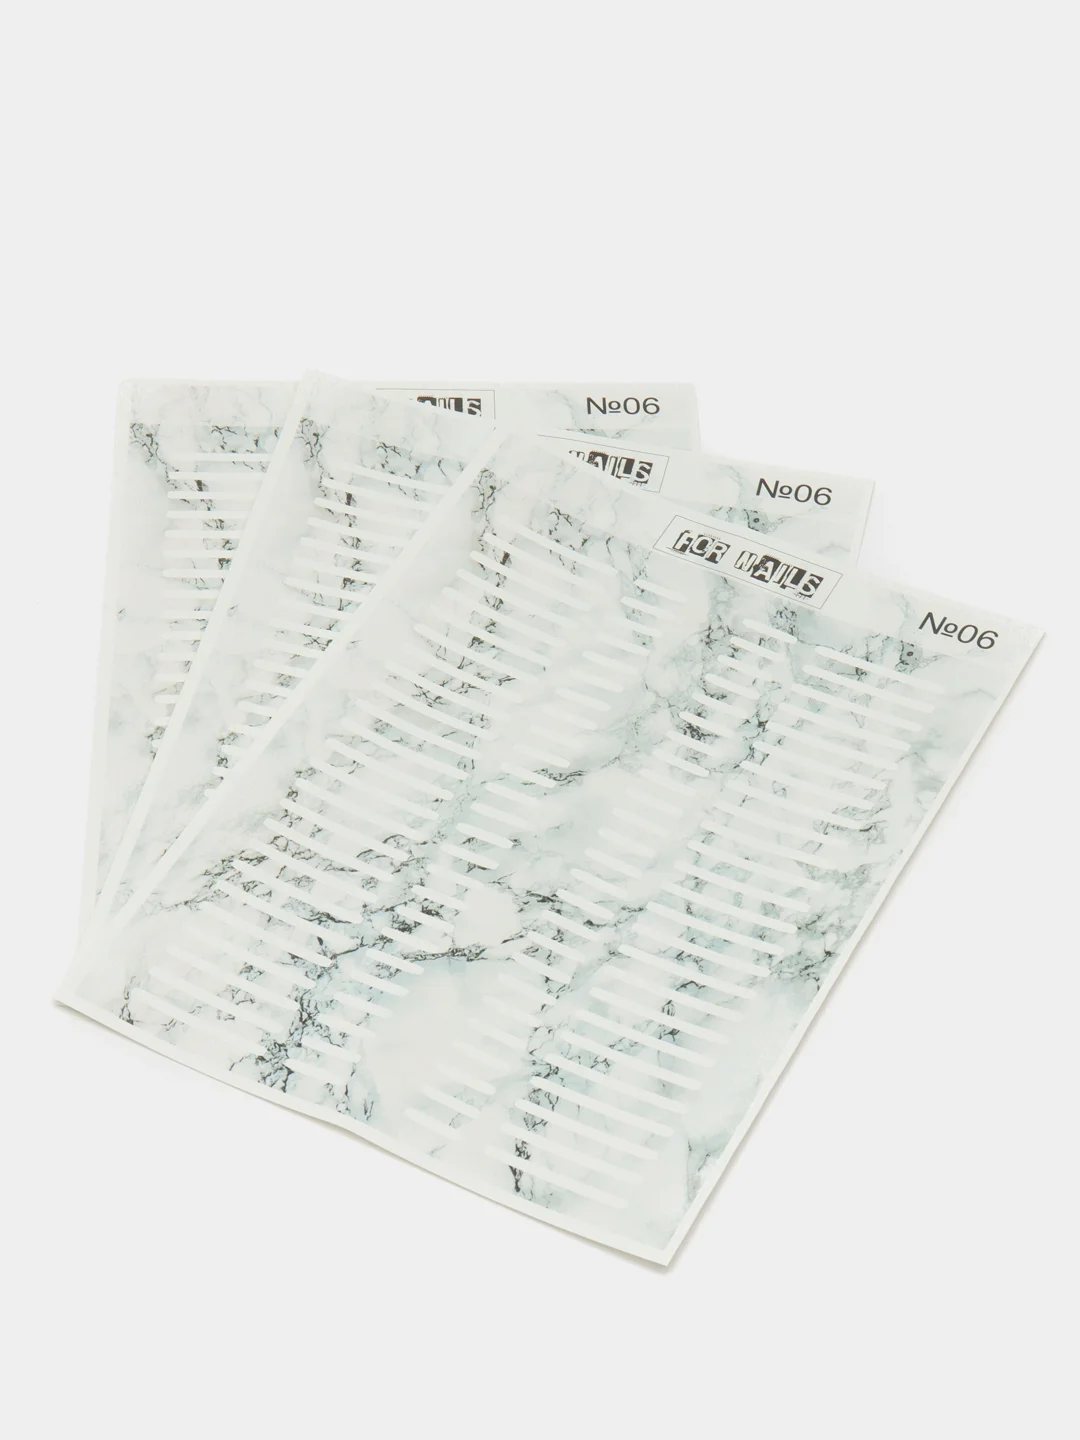 AILS
№06
NAILS
№06
FOR NAILS
№06